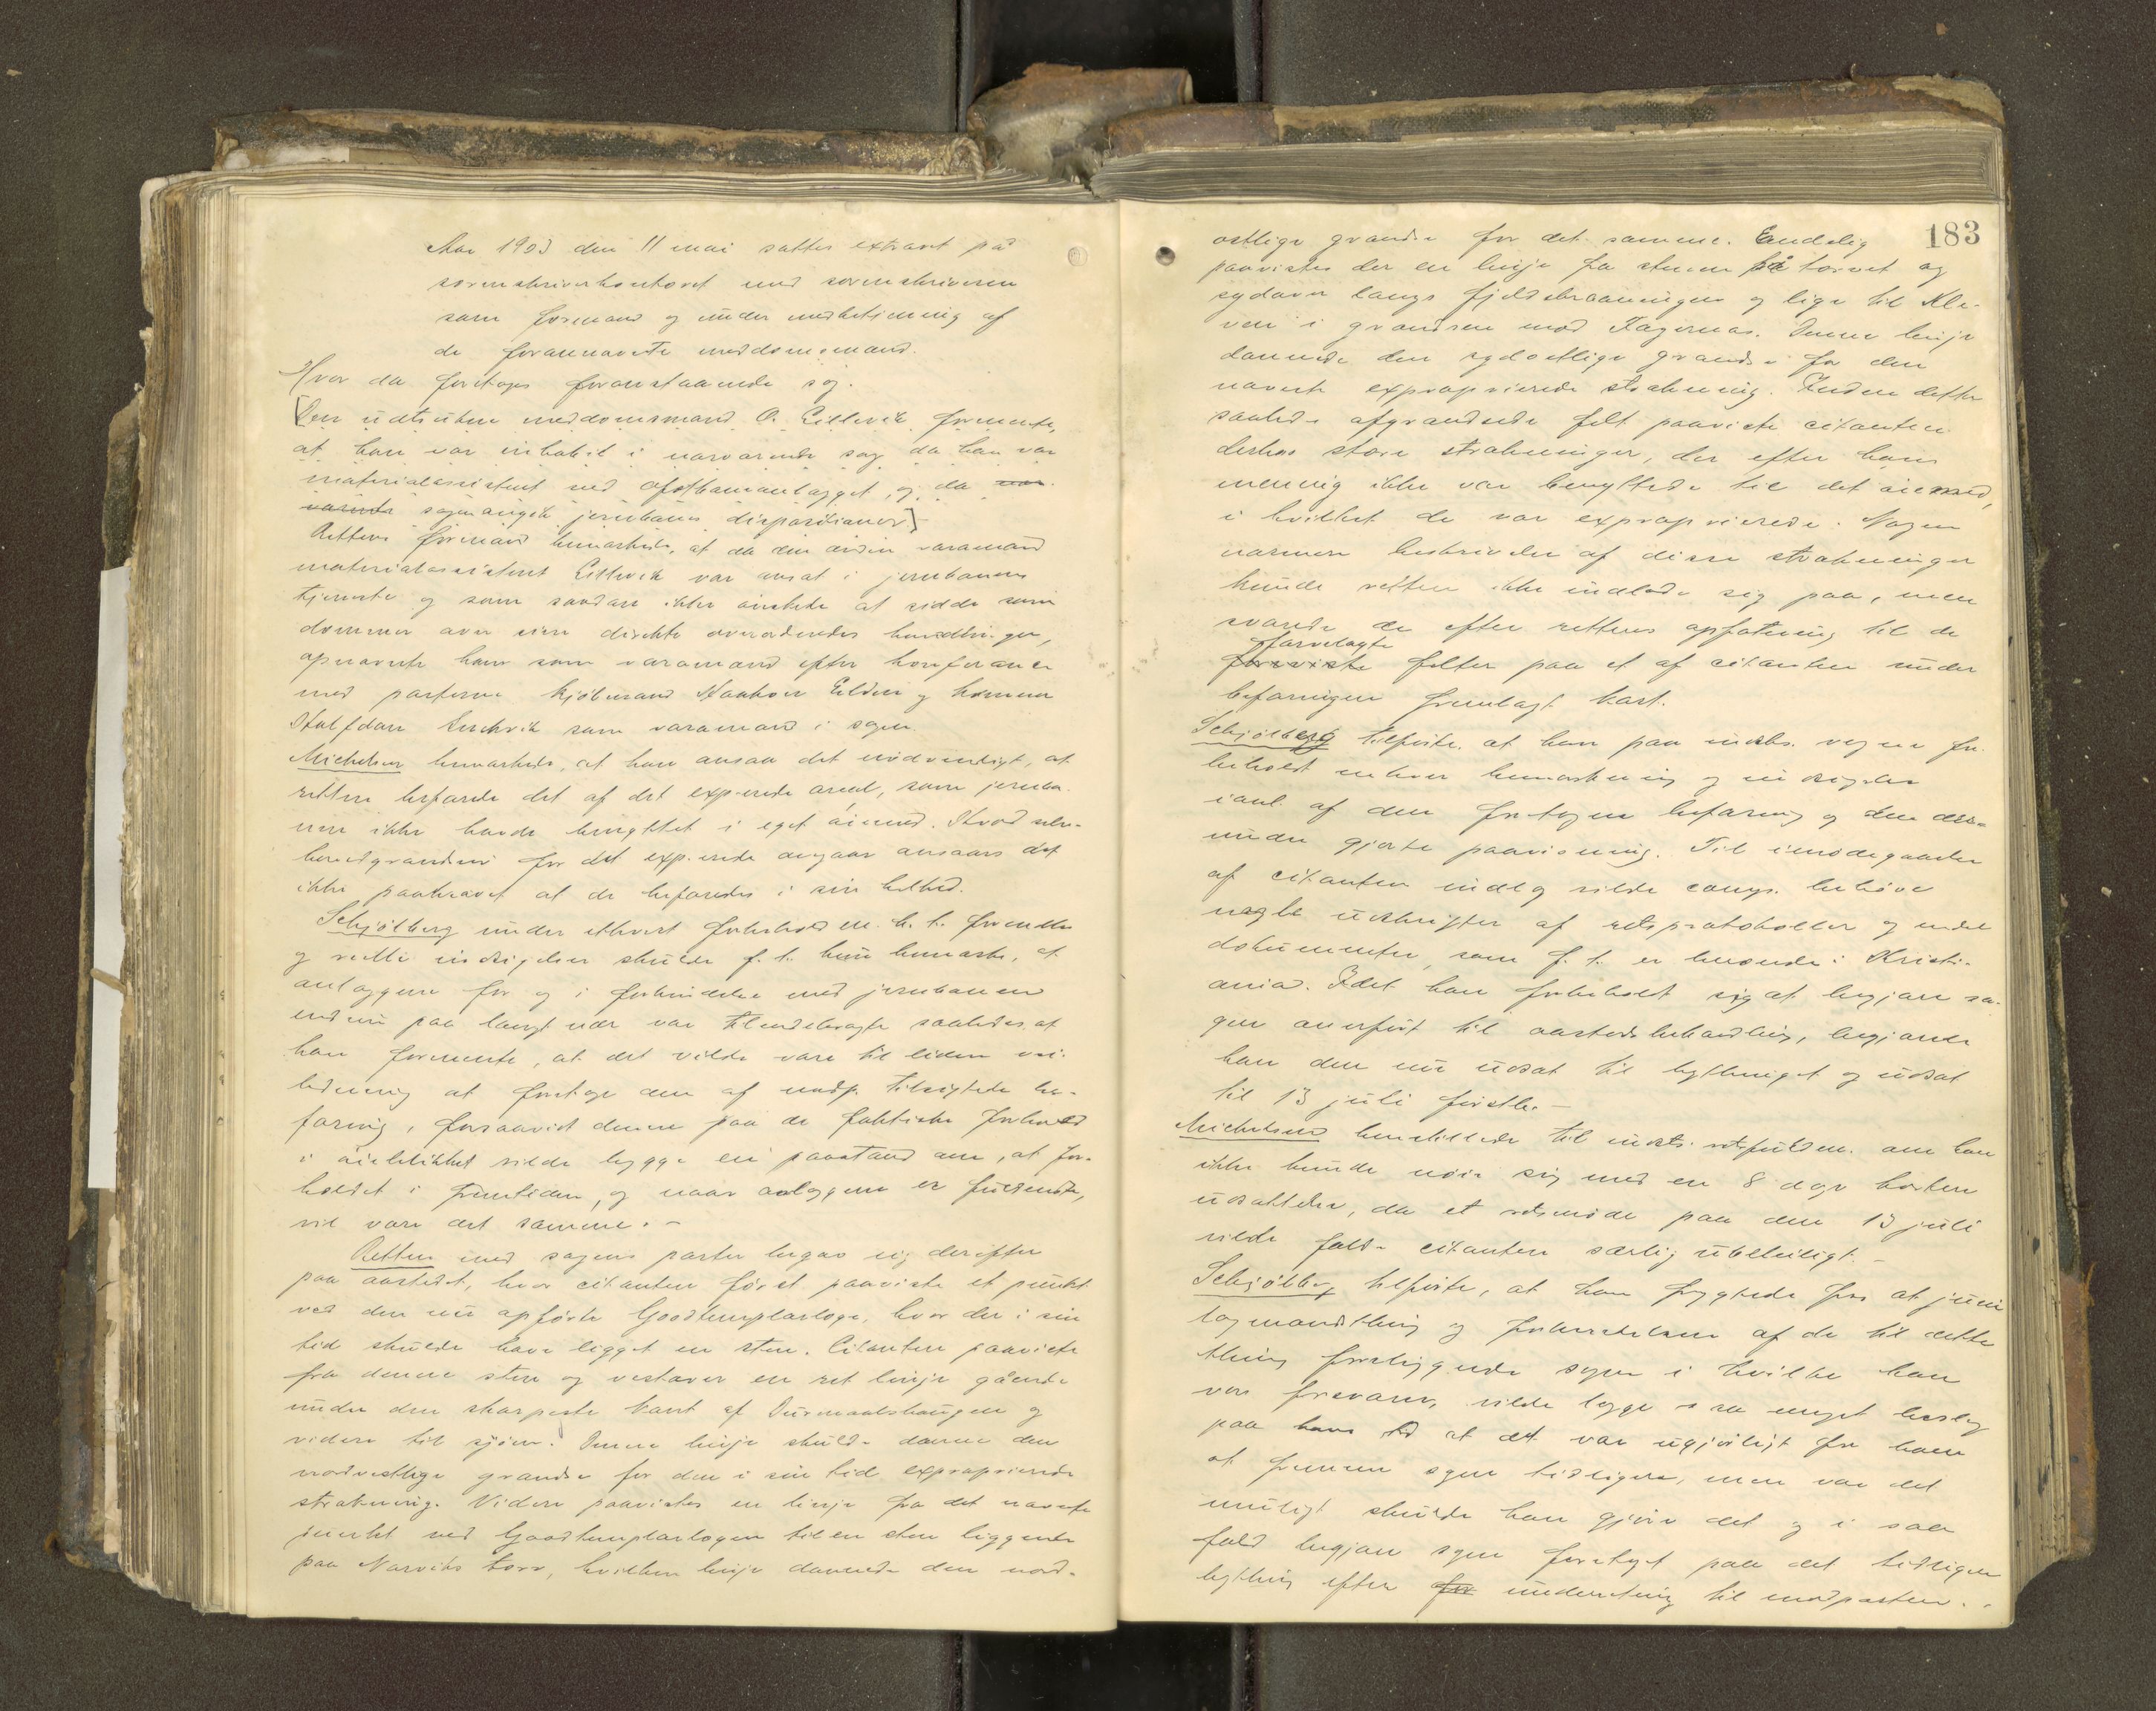 Aar 1903 den 11 mai sattes extraret på
sorenskriverkontoret med sorenskriveren
som formand og under medbetjening af
de forannævnte meddomsmænd.
Hvor da foretoges foranstaaende sag.
[Den udtrukne meddomsmand O. Lillevik formente,
at han var inhabil i nærværende sag da han var
materialassistent ved Ofotbaneanlægget, og da
sagen angik jernbanens dispositioner]
Rettens formand bemærkede, at da den anden varamand
materialassistent Lillevik var ansat i jernbanens
tjeneste og som saadan ikke ønskede at sidde som
dommer over sine direkte overordnedes handlinger,
opnævnte han som varamænd efter konferance
med parterne kjøbmand Haakon Elden og
Halfdan som varamand i sagen.
Michelsen bemærkede, at han ansaa det nødvendigt, at
retten befarede det af det exp-erede areal, som jernba-
nen ikke havde benyttet i eget øiemed. Hvad
grændser for det exp.erede angaar ansaaes det
ikke paakrævet at de befaredes i sin helhed.
Schjølberg under ethvert forbehold m. h. t. fremkomst
og reelle indsigelser skulde f. t. kun bemærke, at
anlæggene for og i forbindelse med jernbanen
endnu paa langt nær var tilendebragte saaledes, at
han formente, at det vilde være til liden vei-
ledning at foretage den af modp. tilsigtede be-
faring, forsaavidt denne paa de faktiske forhold
i øieblikket vilde bygge en paastand om, at for-
holdet i fremtiden, og naar anlæggene er fuldendte,
vil være det samme. -
Retten med sagens parter begav sig derefter
paa aastedet, hvor citanten først paaviste et punkt
ved den nu opførte Goodtemplarloge, hvor der i sin
tid skulde have ligget en sten. Citanten paaviste
fra denne sten og vestover en ret linje gående
under den skarpeste kant af Durmaalshaugen og
videre til sjøen. Denne linje skulde danne den
nordvestlige grændse for den i sin tid exproprierede
strækning. Videre paavistes en linje fra det nævnte
punkt ved Goodtemplarlogen til en sten liggende
paa Narviks torv, hvilken linje dannede den nord-
183
østlige grændse for det samme. Endelig
paavistes der en linje fra stenen på torvet og
sydover langs fjeldskraaningen og lige til Kle-
ven i grændsen mod Fagernæs. Denne linje
dannede den sydøstlige grændse for den
nævnte exproprierede strækning. Inden dette
saaledes afgrændsede felt paaviste citanten
derhos store strækninger, der efter hans
mening ikke var benyttede til det øiemed,
i hvilket de var exproprierede. Nogen
nærmere beskrivelse af disse strækninger
kunde retten ikke indlade sig paa, men
svarede de efter rettens opfatning til de
farvelagte
foreviste felter paa et af citanten under
befaringen fremlagt kart.
Schjølberg tilførte, at han paa indsts. vegne for-
beholdt enhver bemærkning og indsigelse
i anl. af den foretagne befaring og den der-
under gjorte paavisning. Til imødegaaelse
af citantens indlæg vilde comp. behøve
nogle udskrifter af retsprotokoller og endel
dokumenter, som f. t. er beroende i Kristi-
ania. Idet han forbeholdt sig at begjære sa-
gen overført til aastedsbehandling, begjærede
han den nu udsat til bytthinget og udsat
til 13 juli førstk. -
Michelsen henstillede til indsts. retsfuldm. om han
ikke kunde nøie sig med en 8 dage kortere
udsættelse, da et retsmøde paa den 13 juli
vilde falde citanten særlig ubeleiligt. -
Schjølberg tilførte, at han frygtede for at juni
lagmandsthing og forberedelsen af de til dette
thing foreliggende sager i hvilke han
var forsvarer, vilde lægge saa meget beslag
paa hans tid at det var ugjørligt for ham
at fremme sagen tidligere, men var det
muligt skulde han gjøre det og i saa
fald begjære sagen foretaget paa det tidligere
bything efter for underretning til modparten. -